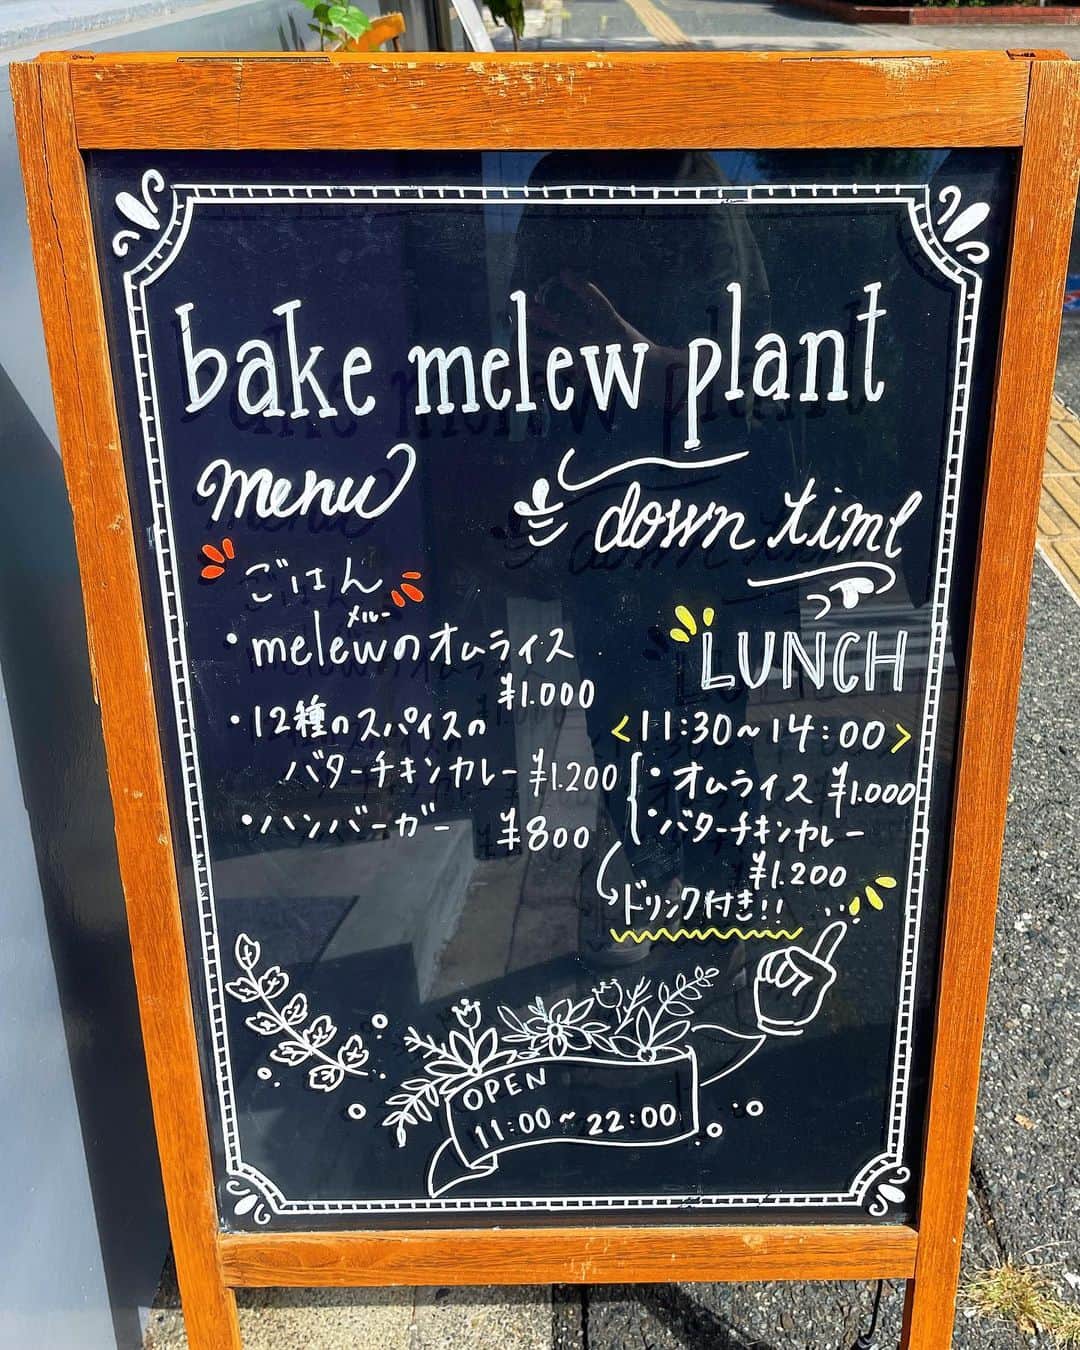 bake melew plant
menu
down time
ごはん
メルー
・melewのオムライス
¥1.000
・12種のスパイスの
バターチキンカレー ¥1.200
・ハンバーガー ¥800
LUNCH
<11:30~14:00>
・オムライス ¥1.000
・バターチキンカレー
¥1.200
ドリンク付き!!
OPEN
11:00~22:00